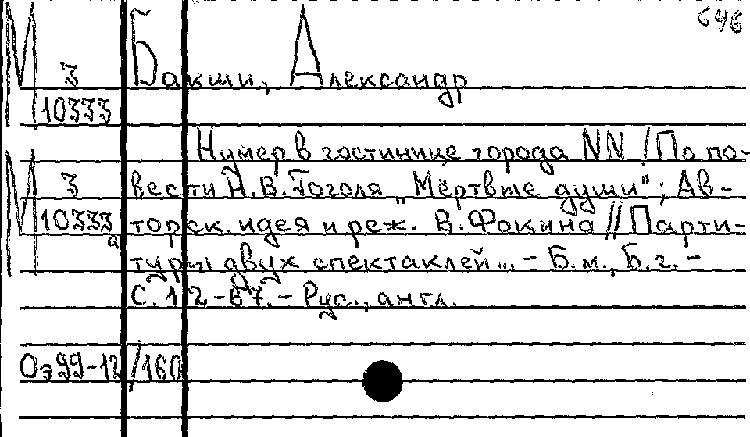 646
М 3 Бакши, Александр
10333
Нумер в гостинице города NN / По по-
М 3 вести Н.В. Гоголя „Мёртвые души"; Ав-
10333а торск. идея и реж. В. Фокина // Парти-
туры двух спектаклей... - Б.м., Б.г. -
С. 12-67. - Рус., англ.
Оэ99-12/160